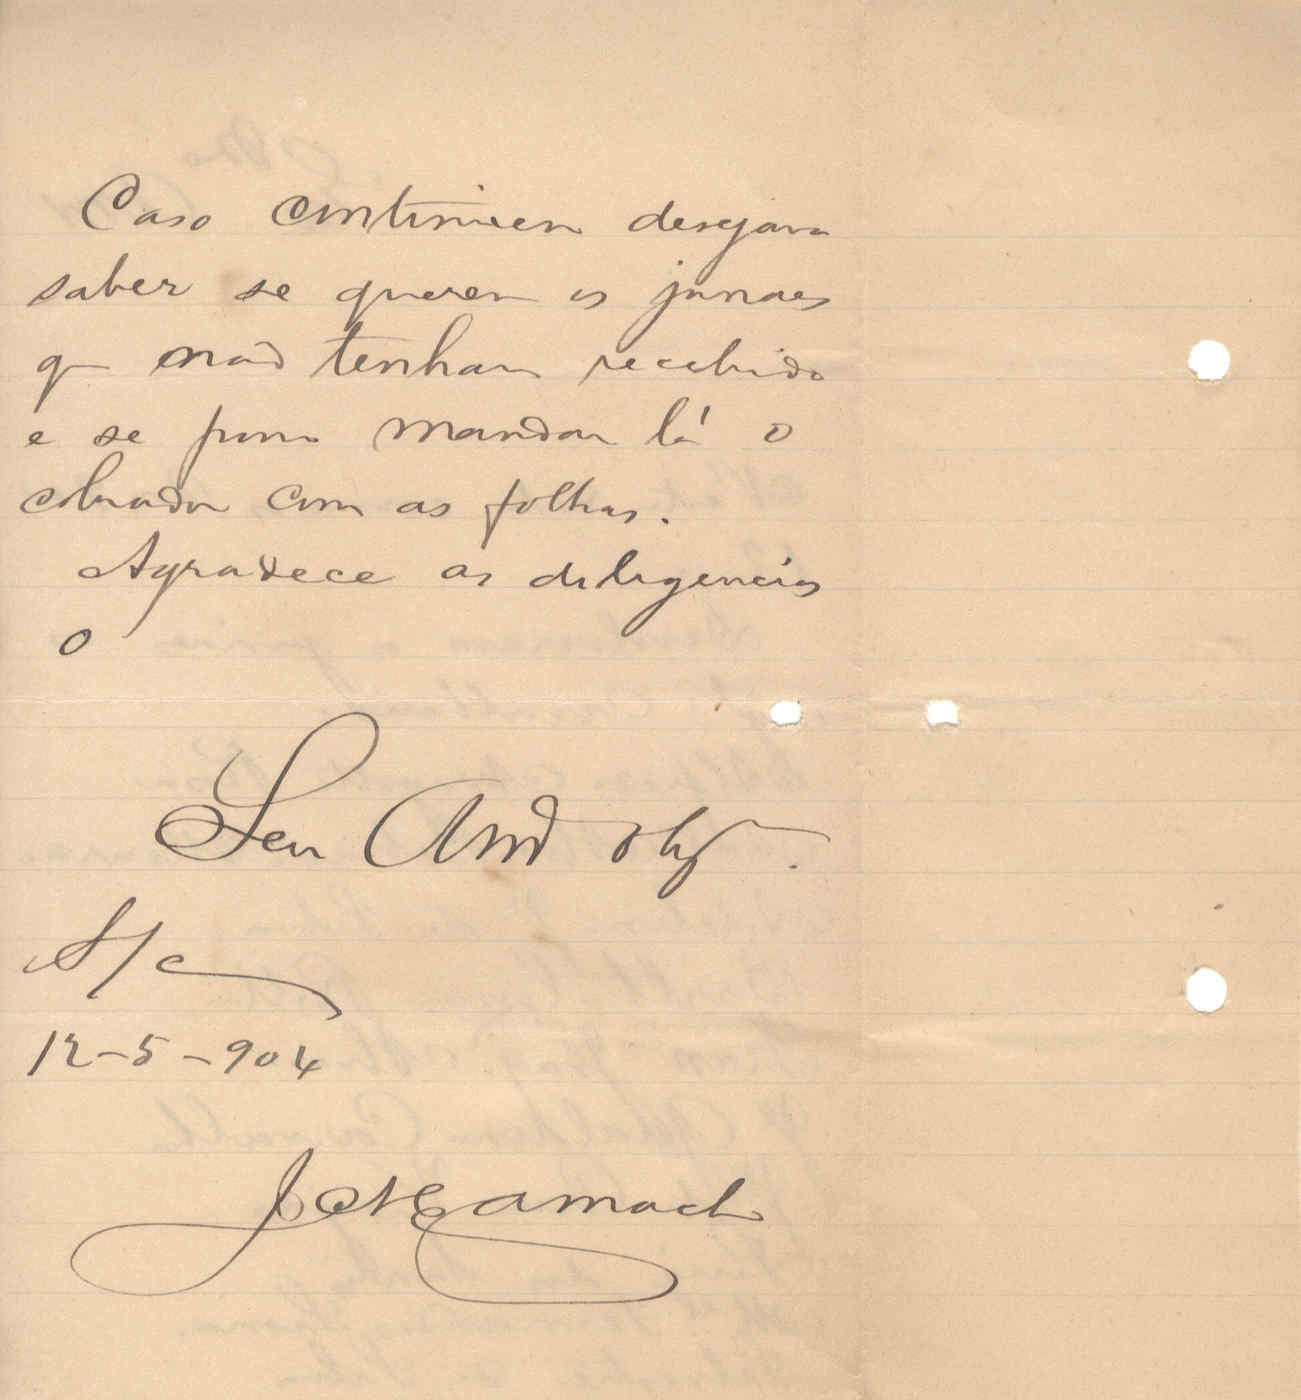 Caso continuem desejava
saber se querem os jornaes
q não tenham recebido
e se posso mandar lá o
cobrador com as folhas.
Agradece as diligencias
o
Seu Am.º obg.
S/c
12-5-904